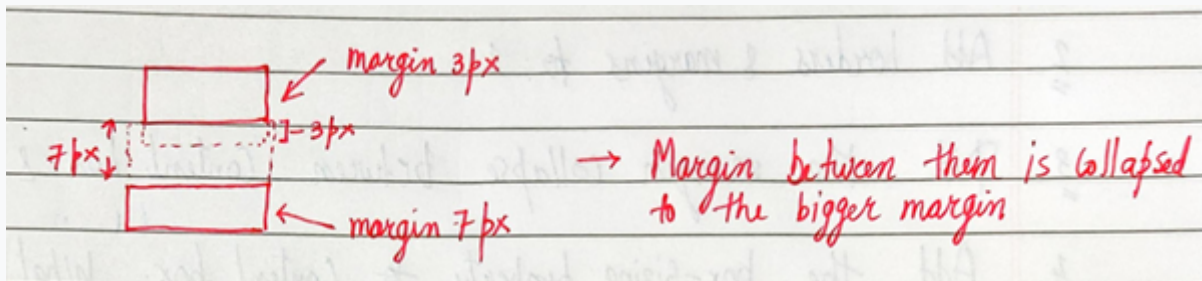 margin 3px
]-3px
7px
→ Margin between them is collapsed
to the bigger margin
margin 7px